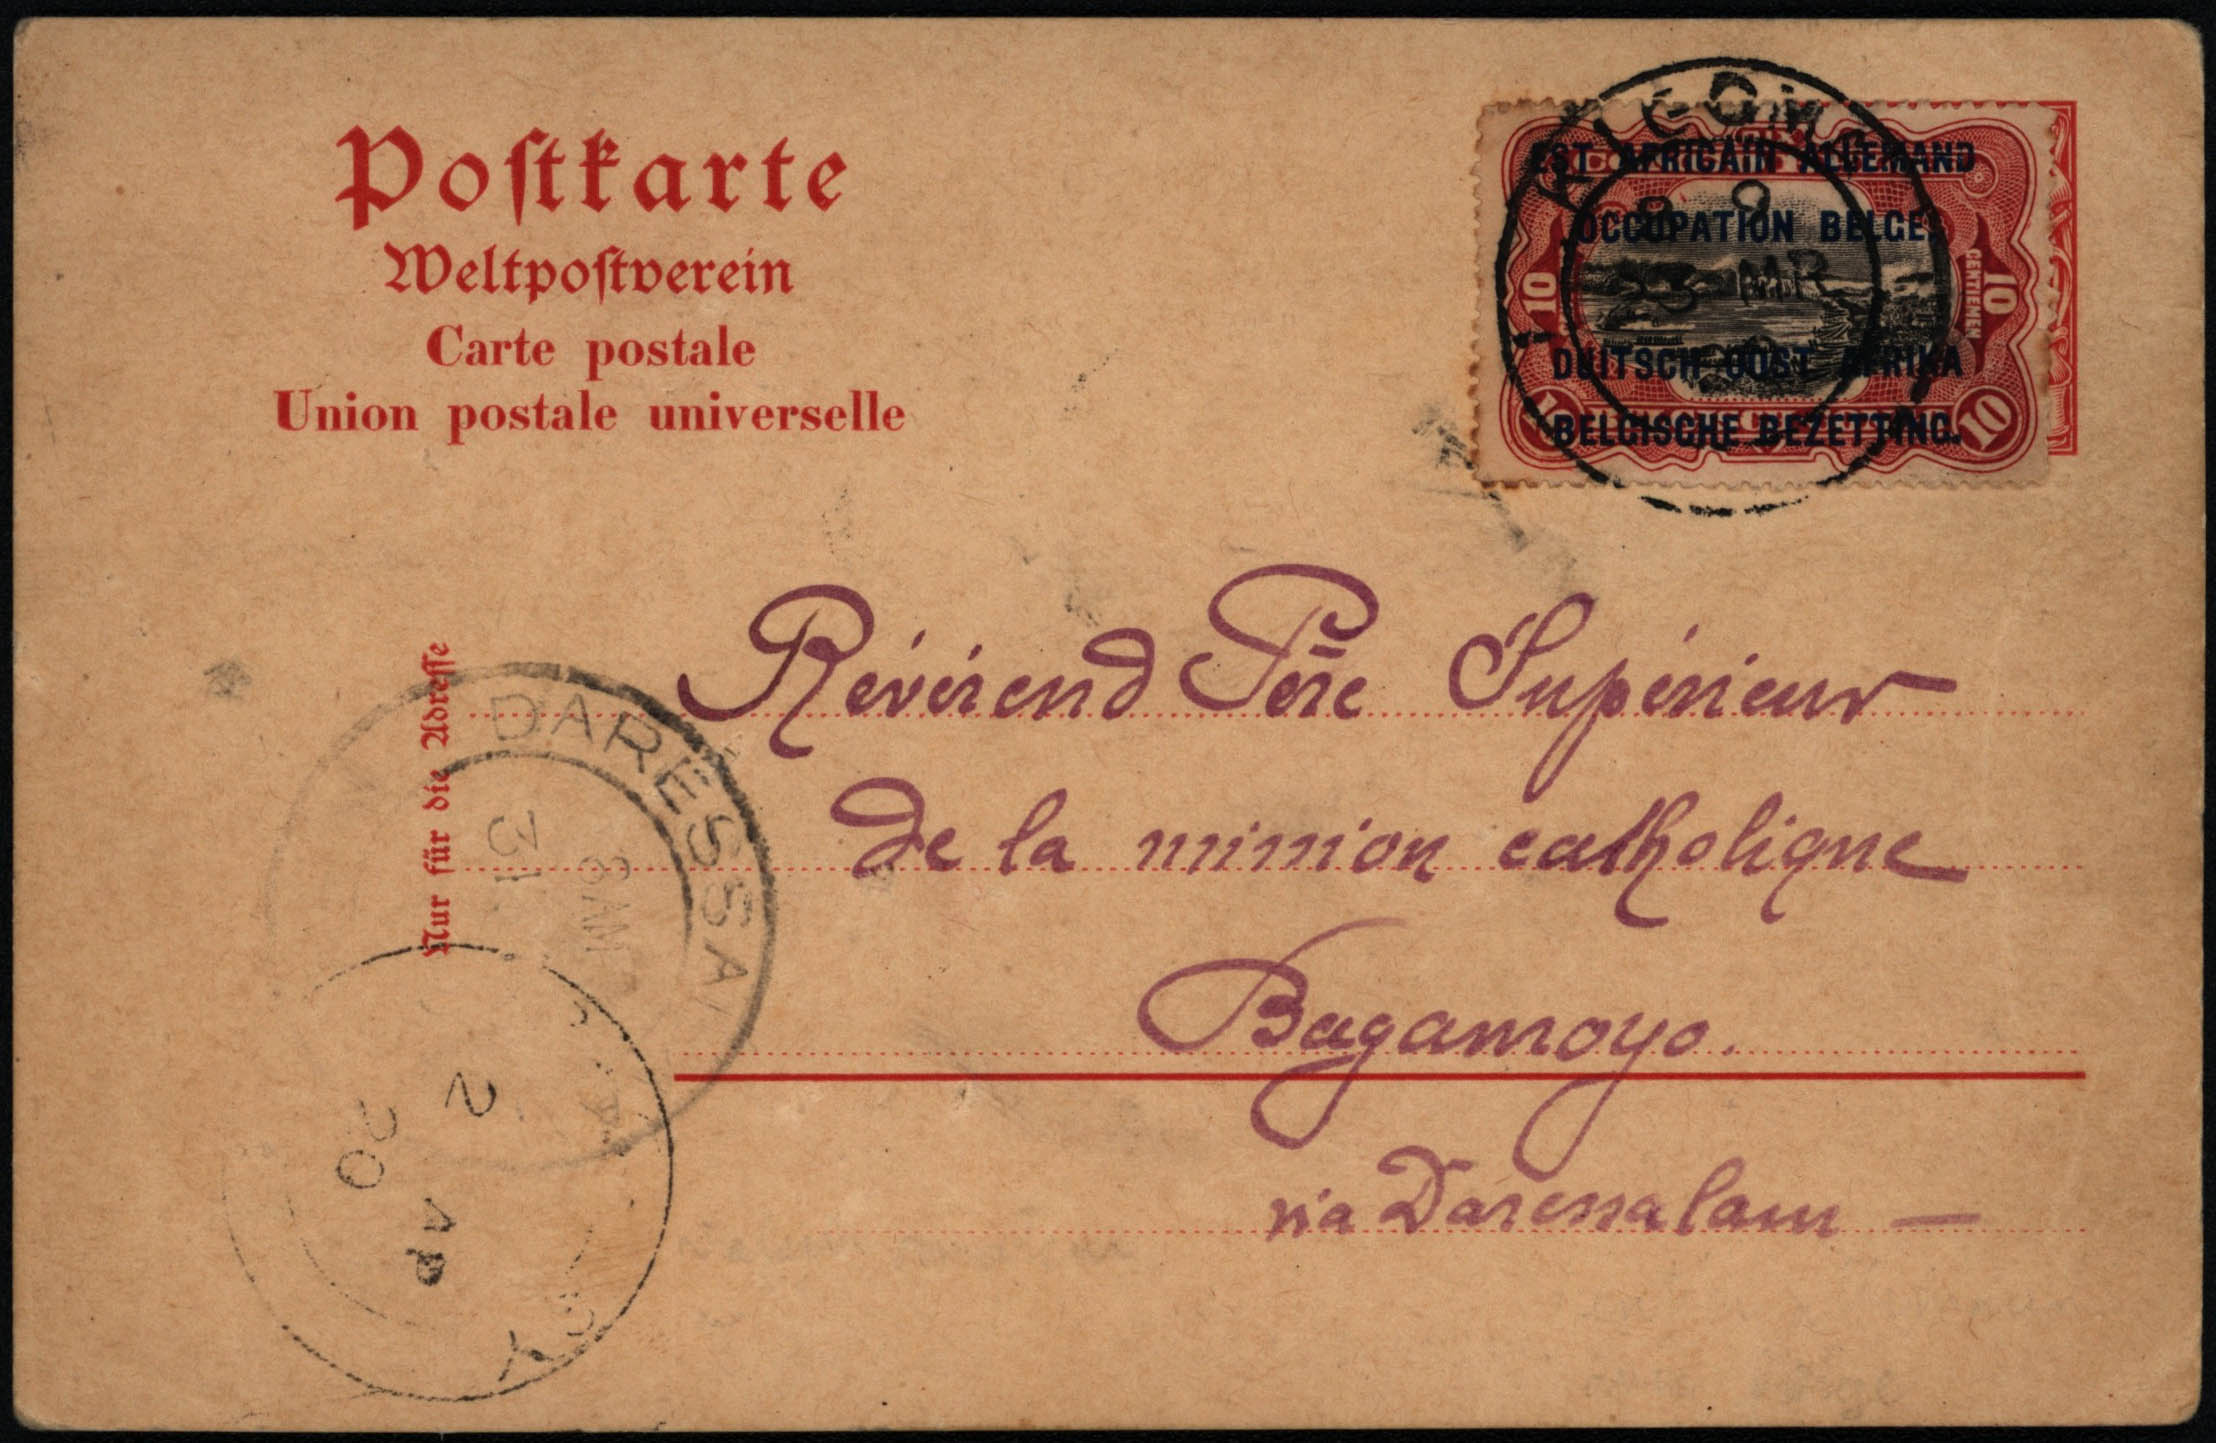 Postkarte
Weltpostverein
Carte postale
Union postale universelle
EST AFRICAIN ALLEMAND
OCCUPATION BELGE.
10 10
CENTIEMEN
DUITSCH OOST AFRIKA
BELGISCHE BEZETTING.
10
Nur für die Adresse
DARESSA
31
8 AM
2
AP
20
Révérend Père Supérieur
de la mission catholique
Bagamoyo.
via Daressalam —